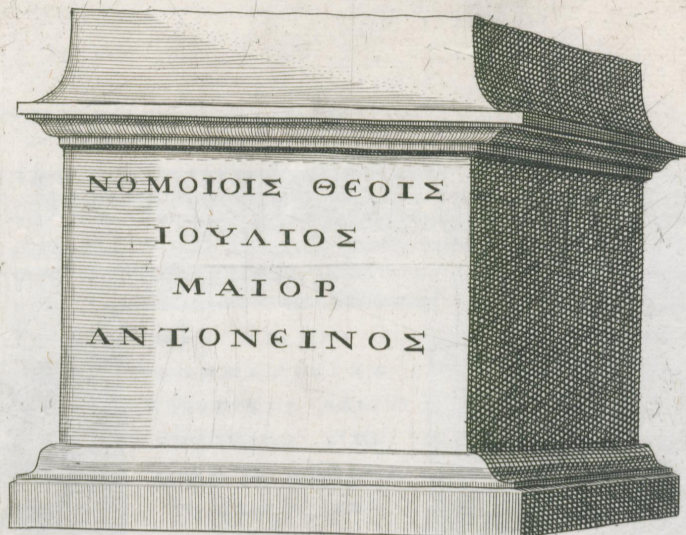 ΝΟΜΟΙΟΙΣ ΘΕΟΙΣ
ΙΟΥΛΙΟΣ
ΜΑΙΟΡ
ΑΝΤΟΝΕΙΝΟΣ